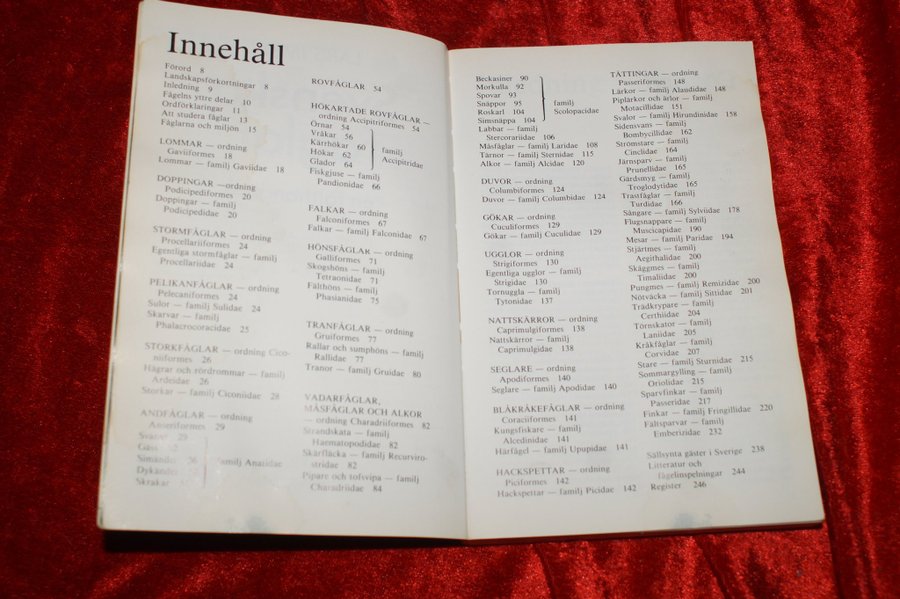 Innehåll
Förord 8
Landskapsförkortningar 8
Inledning 9
Fågelns yttre delar 10
Ordförklaringar 11
Att studera fåglar 13
Fåglarna och miljön 15
LOMMAR — ordning
Gaviiformes 18
Lommar — familj Gaviidae 18
DOPPINGAR — ordning
Podicipediformes 20
Doppingar — familj
Podicipedidae 20
STORMFÅGLAR — ordning
Procellariiformes 24
Egentliga stormfåglar — familj
Procellariidae 24
PELIKANFÅGLAR — ordning
Pelecaniformes 24
Sulor — familj Sulidae 24
Skarvar — familj
Phalacrocoracidae 25
STORKFÅGLAR — ordning Cico-
niiformes 26
Hägrar och rördrommar — familj
Ardeidae 26
Storkar — familj Ciconiidae 28
ANDFÅGLAR — ordning
Anseriformes 29
Svanar 29
Gäss
Simänder
Dykänder
Skrakar
familj Anatidae
ROVFÅGLAR 54
HÖKARTADE ROVFÅGLAR —
ordning Accipitriformes 54
Örnar 54
Vråkar 56
Kärrhökar 60
Hökar 62
Glador 64
familj
Accipitridae
Fiskgjuse — familj
Pandionidae 66
FALKAR — ordning
Falconiformes 67
Falkar — familj Falconidae 67
HÖNSFÅGLAR — ordning
Galliformes 71
Skogshöns — familj
Tetraonidae 71
Fälthöns — familj
Phasianidae 75
TRANFÅGLAR — ordning
Gruiformes 77
Rallar och sumphöns — familj
Rallidae 77
Tranor — familj Gruidae 80
VADARFÅGLAR,
MÅSFÅGLAR OCH ALKOR
— ordning Charadriiformes 82
Strandskata — familj
Haematopodidae 82
Skärfläcka — familj Recurviro-
stridae 82
Pipare och tofsvipa — familj
Charadriidae 84
Beckasiner 90
Morkulla 92
Spovar 93
Snäppor 95
Roskarl 104
Simsnäppa 104
familj
Scolopacidae
Labbar — familj
Stercorariidae 106
Måsfåglar — familj Laridae 108
Tärnor — familj Sternidae 115
Alkor — familj Alcidae 120
DUVOR — ordning
Columbiformes 124
Duvor — familj Columbidae 124
GÖKAR — ordning
Cuculiformes 129
Gökar — familj Cuculidae 129
UGGLOR — ordning
Strigiformes 130
Egentliga ugglor — familj
Strigidae 130
Tornuggla — familj
Tytonidae 137
NATTSKÄRROR — ordning
Caprimulgiformes 138
Nattskärror — familj
Caprimulgidae 138
SEGLARE — ordning
Apodiformes 140
Seglare — familj Apodidae 140
BLÅKRÅKEFÅGLAR — ordning
Coraciiformes 141
Kungsfiskare — familj
Alcedinidae 141
Härfågel — familj Upupidae 141
HACKSPETTAR — ordning
Piciformes 142
Hackspettar — familj Picidae 142
TÄTTINGAR — ordning
Passeriformes 148
Lärkor — familj Alaudidae 148
Piplärkor och ärlor — familj
Motacillidae 151
Svalor — familj Hirundinidae 158
Sidensvans — familj
Bombycillidae 162
Strömstare — familj
Cinclidae 164
Järnsparv — familj
Prunellidae 165
Gärdsmyg — familj
Troglodytidae 165
Trastfåglar — familj
Turdidae 166
Sångare — familj Sylviidae 178
Flugsnappare — familj
Muscicapidae 190
Mesar — familj Paridae 194
Stjärtmes — familj
Aegithalidae 200
Skäggmes — familj
Timaliidae 200
Pungmes — familj Remizidae 200
Nötväcka — familj Sittidae 201
Trädkrypare — familj
Certhiidae 204
Törnskator — familj
Laniidae 205
Kråkfåglar — familj
Corvidae 207
Stare — familj Sturnidae 215
Sommargylling — familj
Oriolidae 215
Sparvfinkar — familj
Passeridae 217
Finkar — familj Fringillidae 220
Fältsparvar — familj
Emberizidae 232
Sällsynta gäster i Sverige 238
Litteratur och
fågelinspelningar 244
Register 246